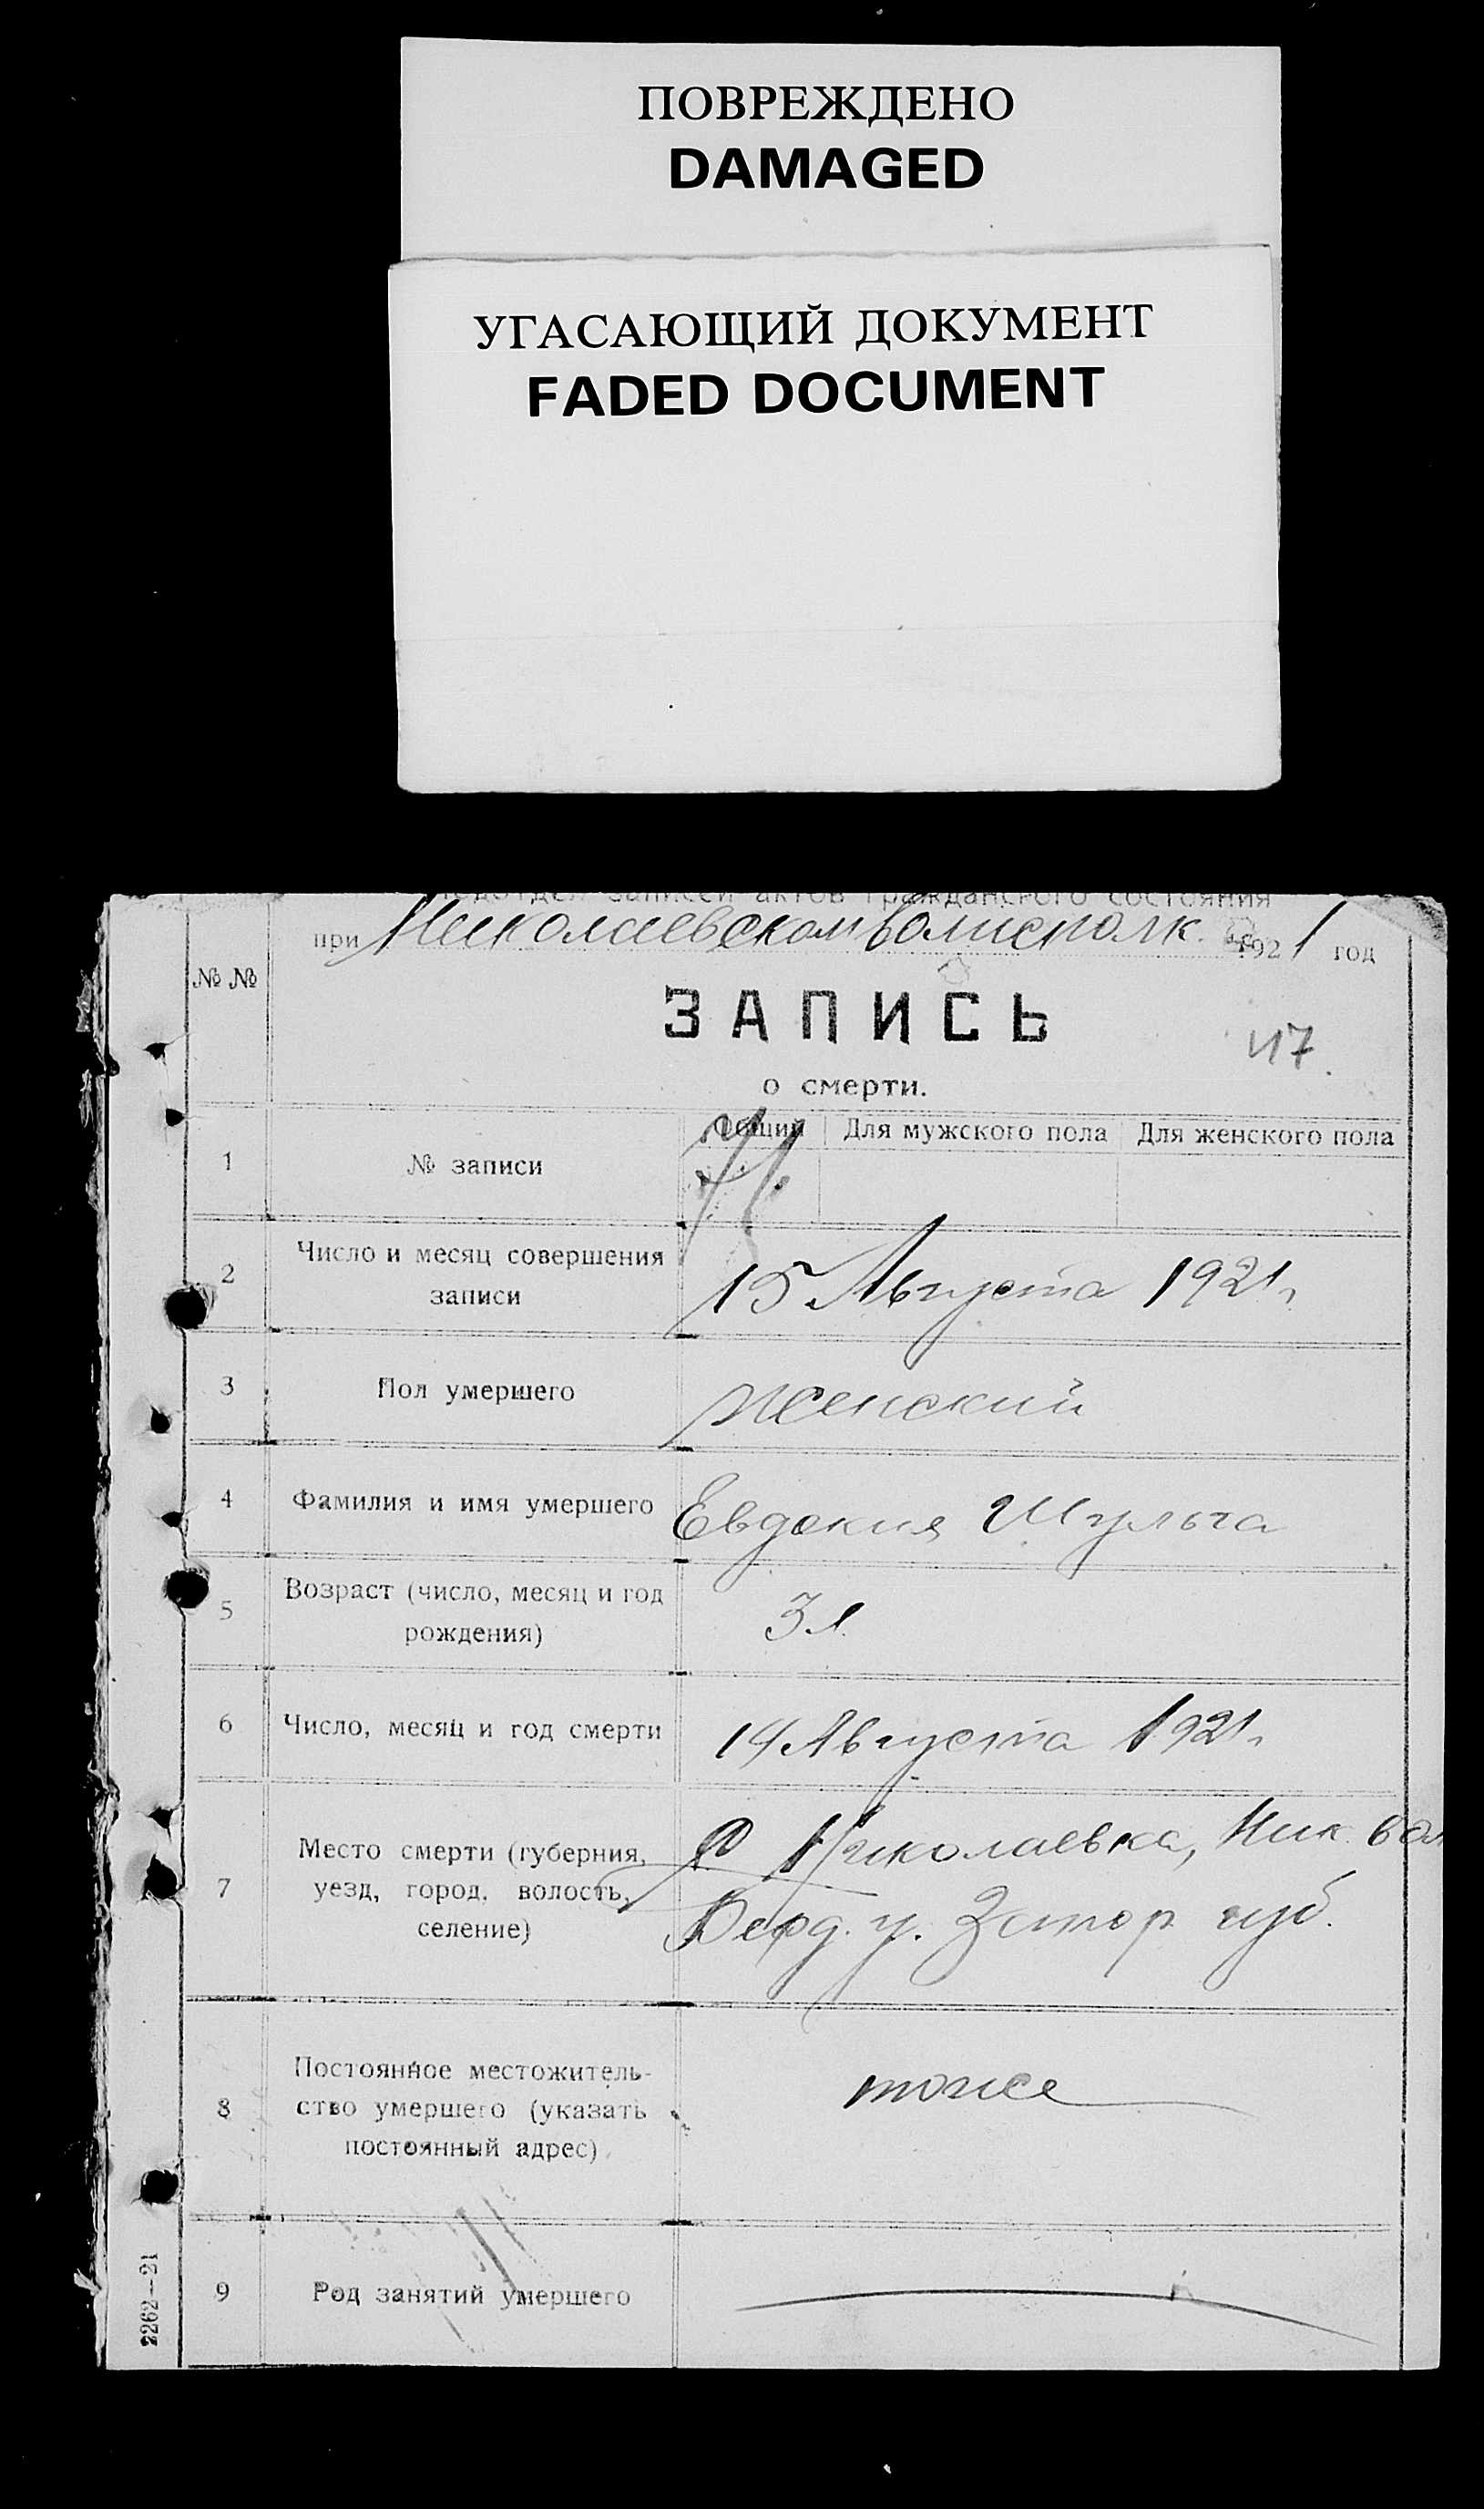 ПОВРЕЖДЕНО
DAMAGED
УГАСАЮЩИЙ ДОКУМЕНТ
FADED DOCUMENT
записей актов гражданского состояния
при Николаевском волисполк. 1921 год
№ №
ЗАПИСЬ
о смерти.
Общий Для мужского пола Для женского пола
1 № записи
2 Число и месяц совершения
записи
15 Августа 1921 г.
3 Пол умершего женский
4 Фамилия и имя умершего Евдокия Шульга
5 Возраст (число, месяц и год
рождения)
3 л.
6 Число, месяц и год смерти 14 Августа 1921 г.
7 Место смерти (губерния,
уезд, город, волость,
селение)
Николаевка, Ник. вол
Берд. у. Запор губ.
8 Постоянное местожитель-
ство умершего (указать
постоянный адрес)
тоже
9 Род занятий умершего
2262—21